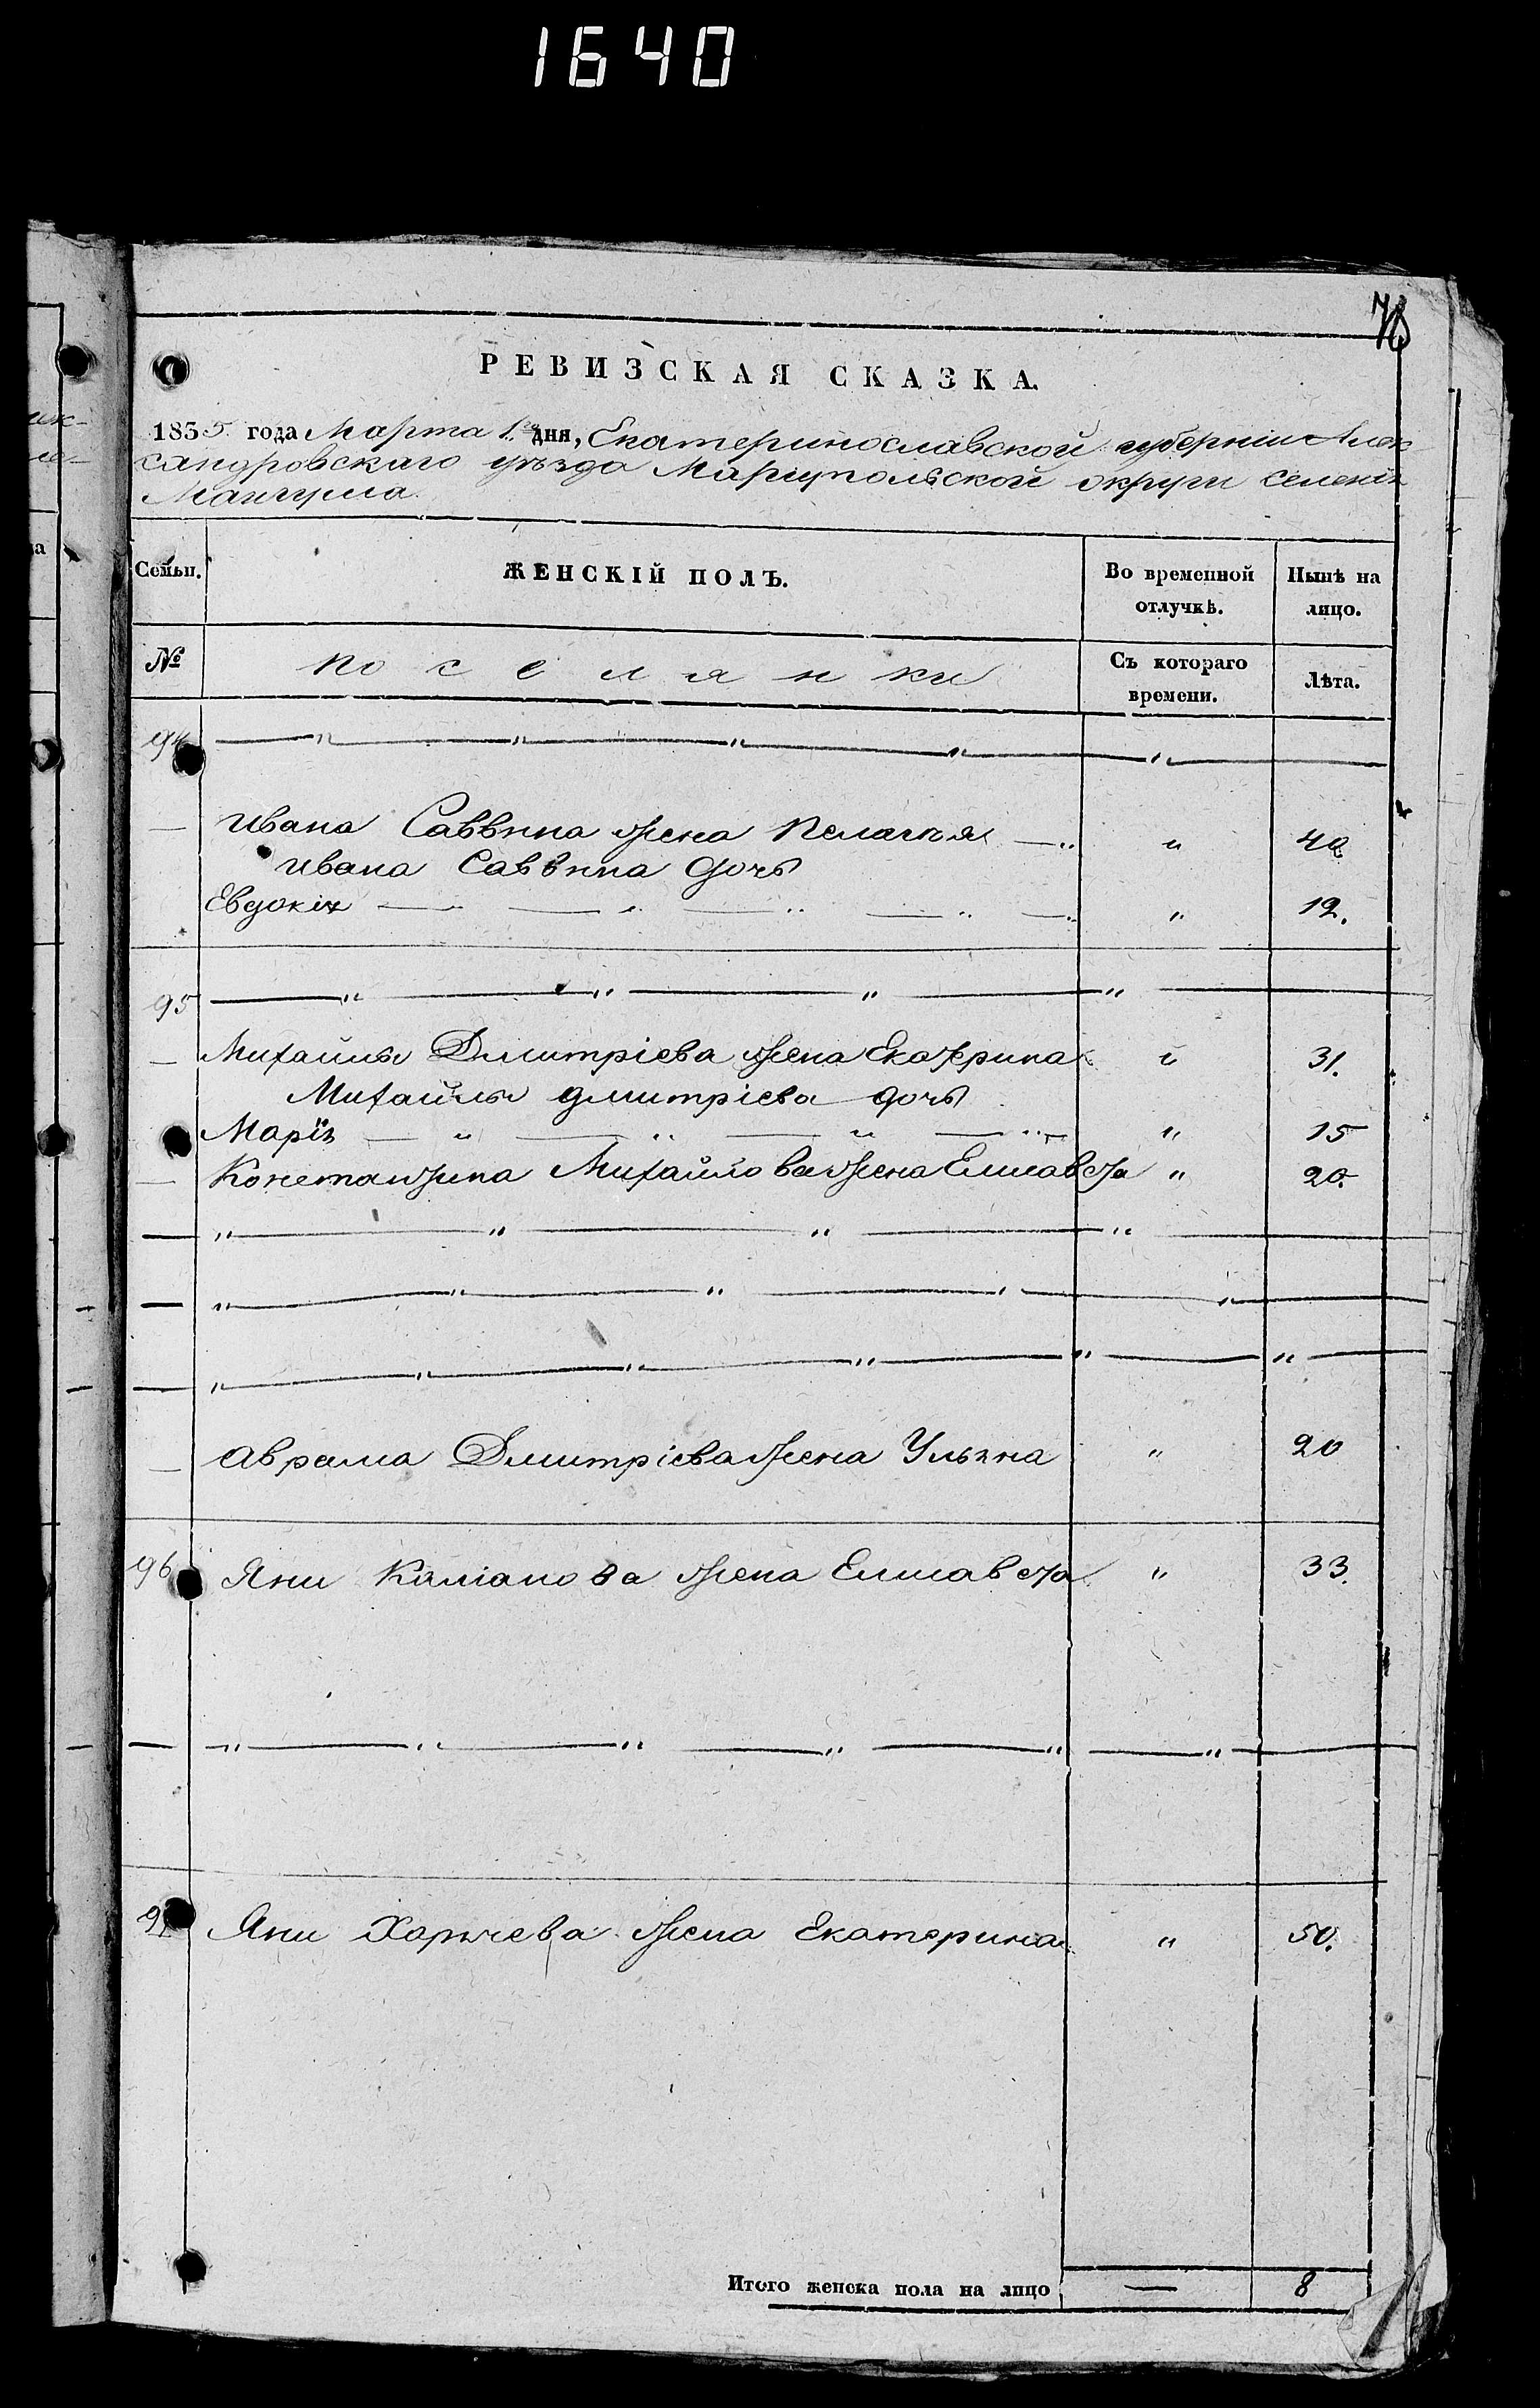 1640
78
РЕВИЗСКАЯ СКАЗКА.
1835 года Марта 1го дня, Екатеринославской губерніи Алек-
сандровскаго уѣзда Маріупольской округи селенія
Мангуша.
Семьи. ЖЕНСКІЙ ПОЛЪ. Во временной отлучкѣ. Нынѣ на лицо.
№ поселянки Съ котораго времени. Лѣта.
94 — „ — „ — „ — „ — „ —
— Ивана Саввина жена Пелагия — „ „ 40
Ивана Саввина дочь
Евдокія — „ — „ — „ — „ — „ „ 12.
95 — „ — „ — „ — „ —
— Михайлы Дмитріева жена Екатерина „ 31.
Михайлы Дмитріева дочь
Марія — „ — „ — „ — „ — „ 15
— Константина Михайлова жена Елисавета „ 20.
— „ — „ — „ — „ —
— „ — „ — „ — „ — „ —
— „ — „ — „ — „ — „ — „ —
— Аврама Дмитріева жена Ульяна „ 20
96 Яни Каліанова жена Елисавета „ 33.
— „ — „ — „ — „ — „ — „ —
97 Яни Харичева жена Екатерина „ 50.
Итого женска пола на лицо — 8